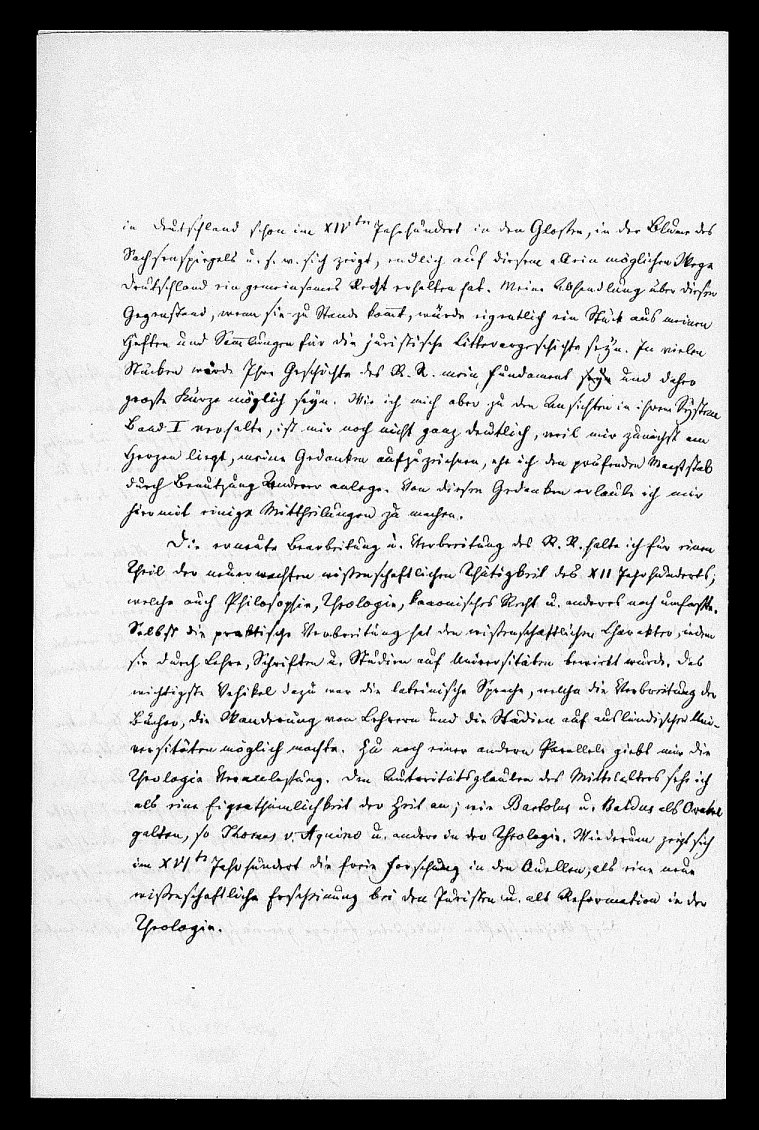 in Deutschland schon im XIV^ten Jahrhundert in den Glossen, in der Blume des
Sachsenspiegels u. s. w. sich zeigt, endlich auf diesem allein möglichen Wege
Deutschland ein gemeinsames Recht erhalten hat. Meine Abhandlung über diesen
Gegenstand, wenn sie zu Stande kom̄t, würde eigentlich ein Stück aus meinen
Heften und Sam̄lungen für die juristische Litterargeschichte seyn. In vielen
Stücken würde Ihre Geschichte des R. R. mein Fundament seyn und daher
große Kürze möglich seyn. Wie ich mich aber zu den Ansichten in ihrem System
Band I verhalte, ist mir noch nicht ganz deutlich, weil mir zunächst am
Herzen liegt, meine Gedanken aufzuzeichnen, ehe ich den prüfenden Maaßstab
durch Benutzung Anderer anlege. Von diesen Gedanken erlaube ich mir
hiermit einige Mittheilungen zu machen.
Die erneute Bearbeitung u. Verbreitung des R. R. halte ich für einen
Theil der neuerwachten wissenschaftlichen Thätigkeit des XII Jahrhunderts,
welche auch Philosophie, Theologie, kanonisches Recht u. anderes noch umfaßte.
Selbst die praktische Verbreitung hat den wissenschaftlichen Charakter, indem
sie durch Lehre, Schriften u. Studien auf Universitäten bewirkt wurde. Das
wichtigste Vehikel dazu war die lateinische Sprache, welche die Verbreitung der
Bücher, die Wanderung von Lehrern und die Studien auf ausländischen Uni-
versitäten möglich machte. Zu noch einer andern Parallele giebt mir die
Theologie Veranlassung. Den Autoritätsglauben des Mittelalters sehe ich
als eine Eigenthümlichkeit der Zeit an; wie Bartolus u. Baldus als Orakel
galten, so Thomas v. Aquino u. andere in der Theologie. Wiederum zeigt sich
im XVI^ten Jahrhundert die freie Forschung in den Quellen, als eine neue
wissenschaftliche Erscheinung bei den Juristen u. als Reformation in der
Theologie.